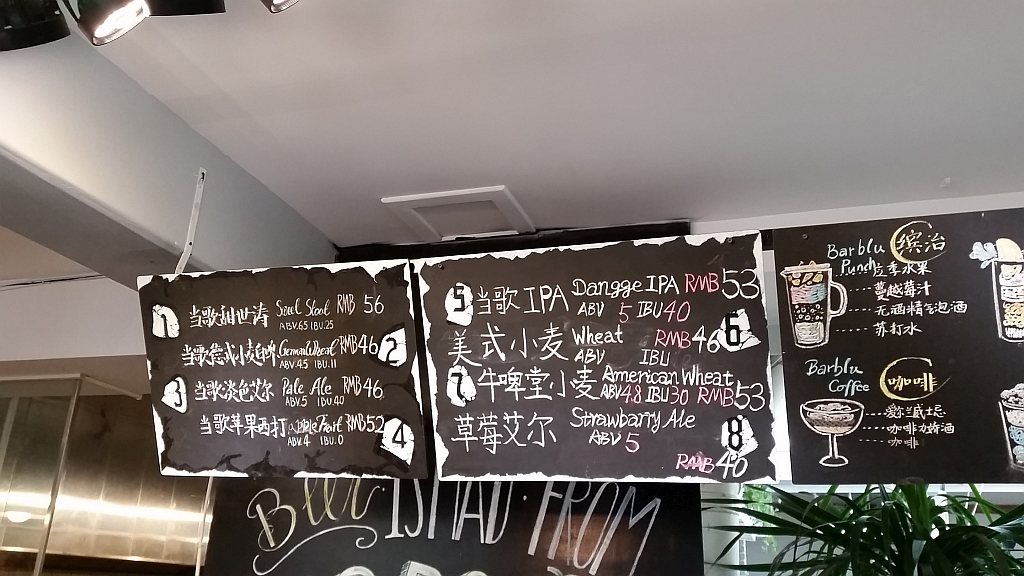 1 当歌甜世涛 Sweet Stout RMB 56
ABV.6.5 IBU.25
当歌德式小麦啤 German Wheat RMB 46 2
ABV 4.5 IBU.11
3 当歌淡色艾尔 Pale Ale RMB 46
ABV.5 IBU.40
当歌苹果西打 RMB 52 4
ABV 4 IBU.0
5 当歌 IPA Dangge IPA RMB 53
ABV 5 IBU 40
美式小麦 Wheat RMB 46 6
ABV IBU
7 牛啤堂小麦 American Wheat
ABV 4.8 IBU 30 RMB 53
草莓艾尔 Strawbarry Ale 8
ABV 5
RMB 40
Barblu 缤治
Punch 应季水果
蔓越莓汁
无酒精气泡酒
苏打水
Barblu 咖啡
Coffee 爱尔兰威士忌
咖啡力娇酒
咖啡
Beer IS MAD FROM